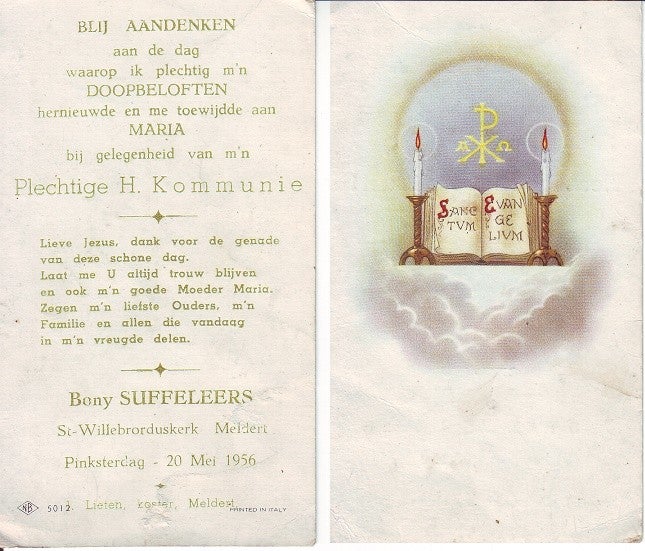 BLIJ AANDENKEN
aan de dag
waarop ik plechtig m'n
DOOPBELOFTEN
hernieuwde en me toewijdde aan
MARIA
bij gelegenheid van m'n
Plechtige H. Kommunie
Lieve Jezus, dank voor de genade
van deze schone dag.
Laat me U altijd trouw blijven
en ook m'n goede Moeder Maria.
Zegen m'n liefste Ouders, m'n
Familie en allen die vandaag
in m'n vreugde delen.
Bony SUFFELEERS
St-Willebrorduskerk Meldert
Pinksterdag - 20 Mei 1956
J. Lieten, koster, Meldert
NB 5012
PRINTED IN ITALY
Α Ω
SANC
TVM
EVAN
GE
LIVM